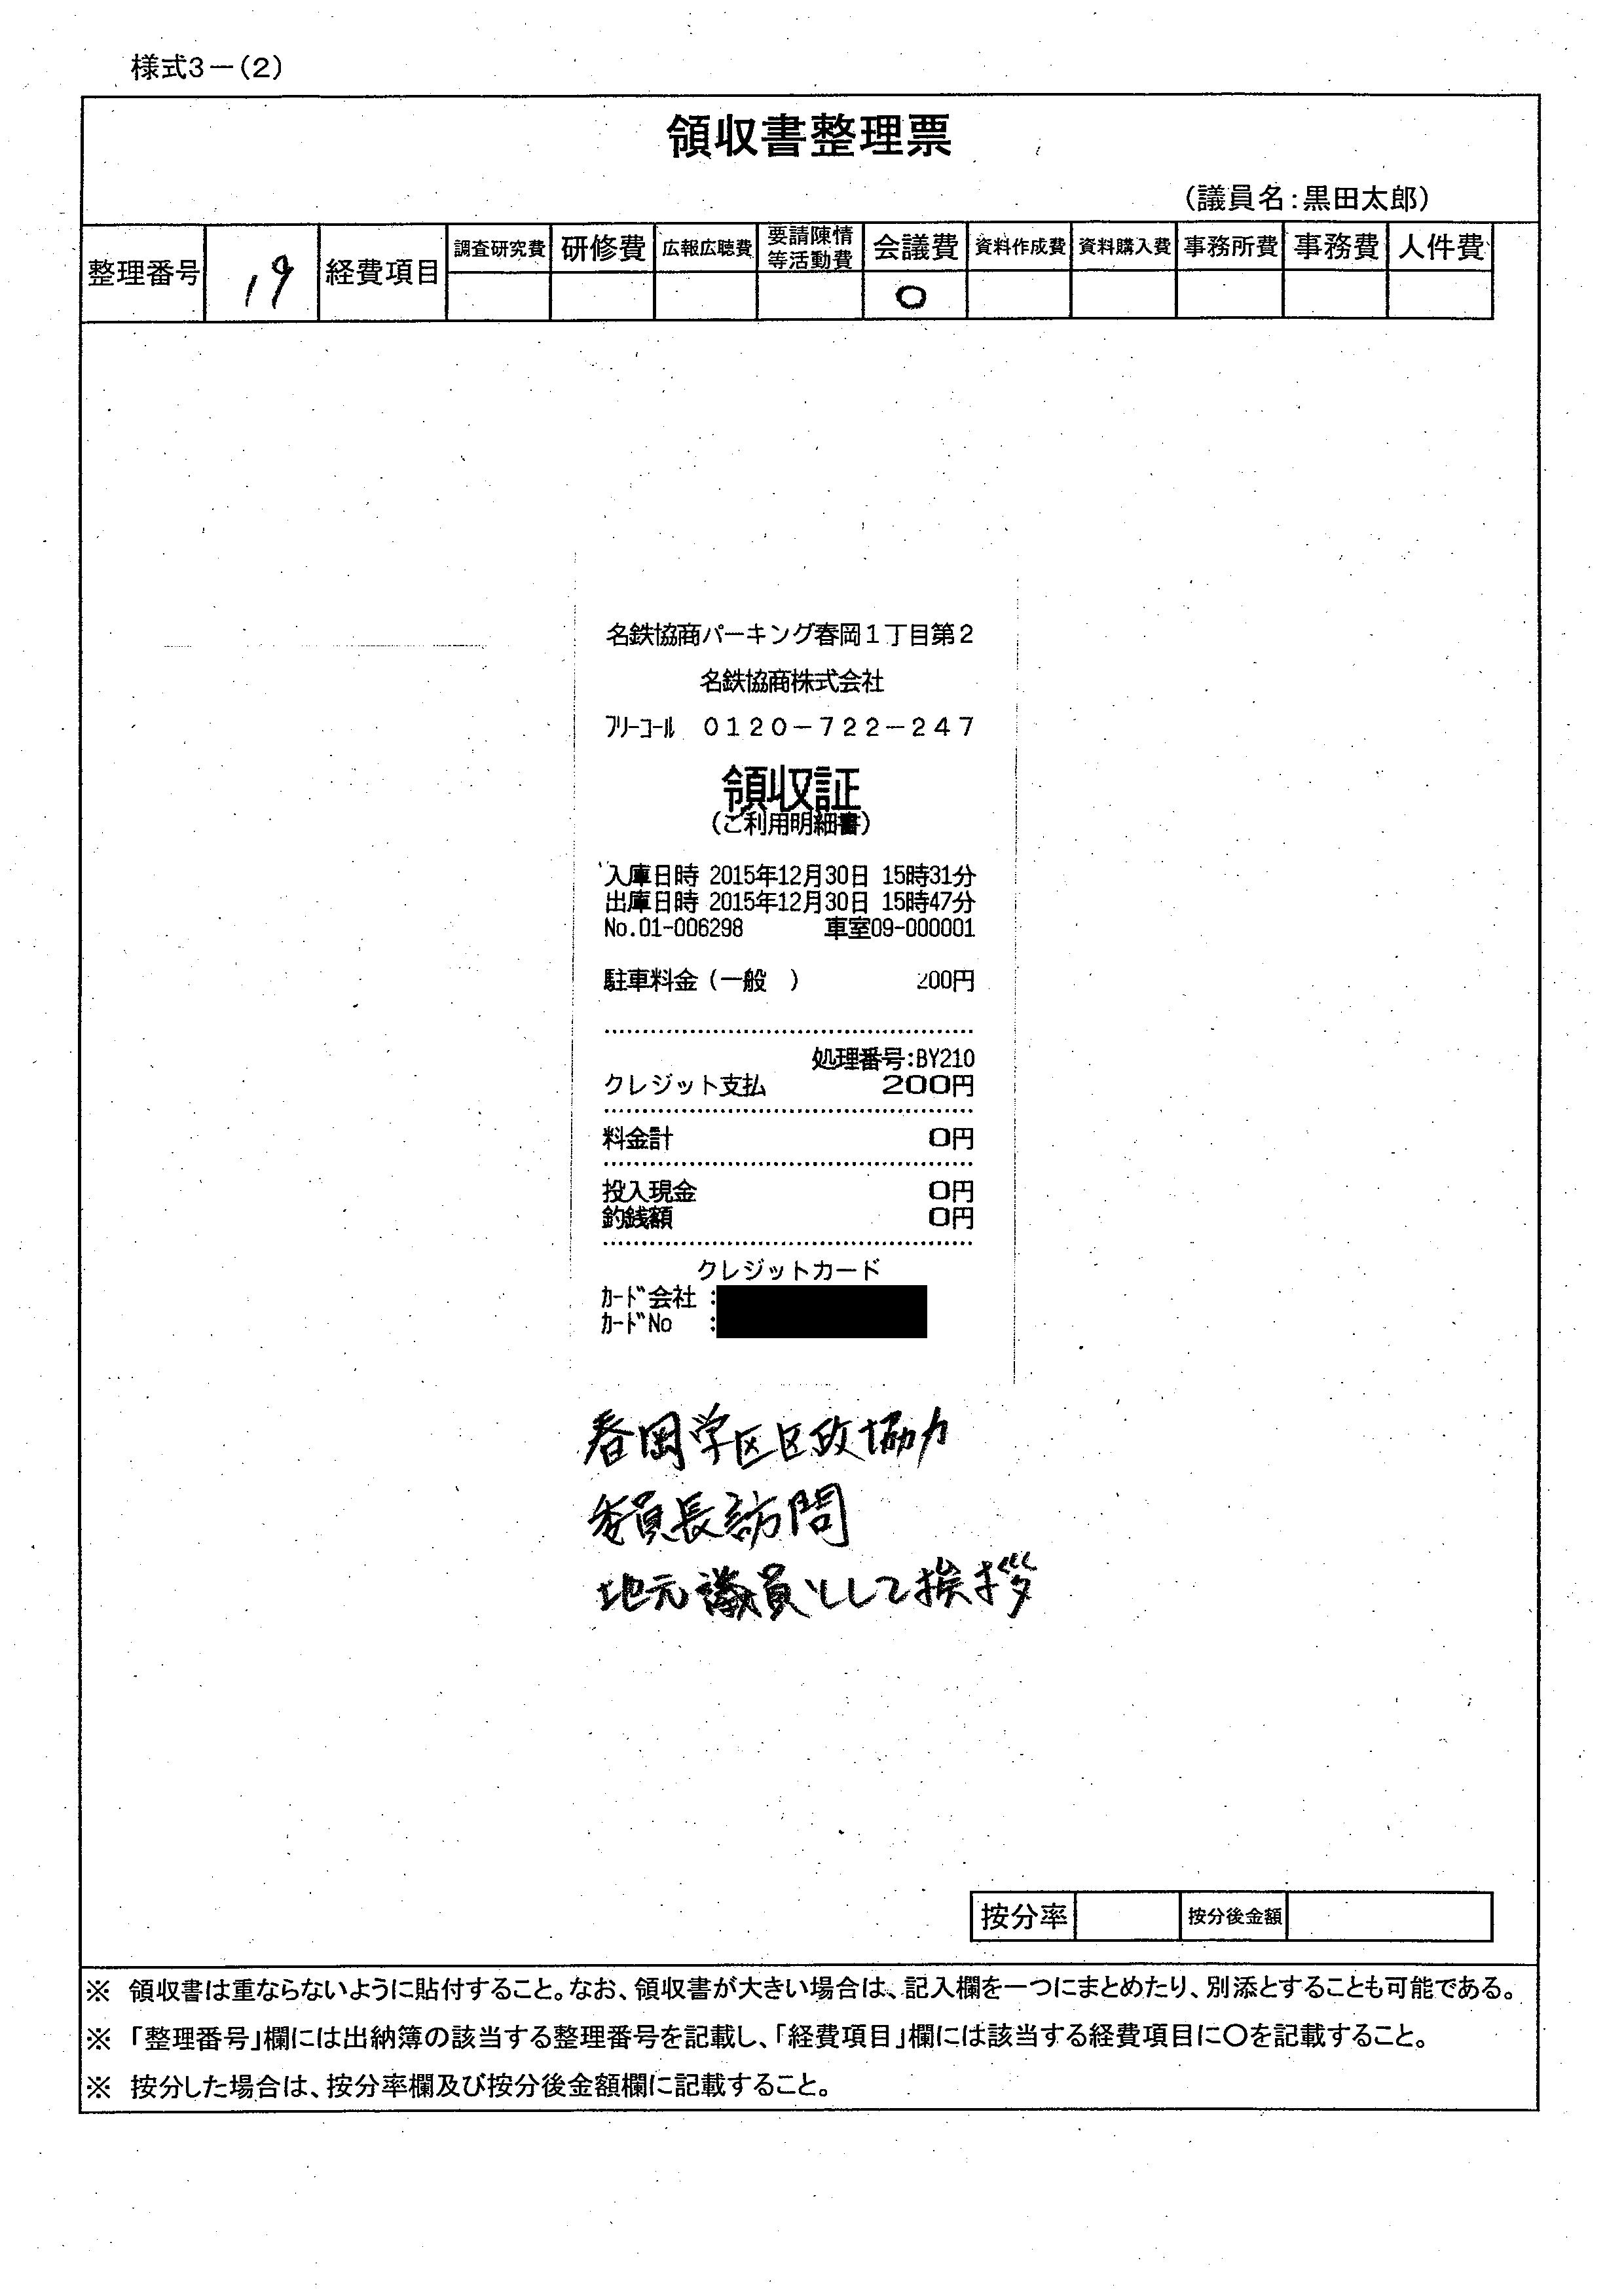 様式3-(2)
領収書整理票
(議員名:黒田太郎)
整理番号 19 経費項目 調査研究費 研修費 広報広聴費 要請陳情等活動費 会議費 資料作成費 資料購入費 事務所費 事務費 人件費
○
名鉄協商パーキング春岡1丁目第2
名鉄協商株式会社
フリーコール 0120-722-247
領収証
(ご利用明細書)
入庫日時 2015年12月30日 15時31分
出庫日時 2015年12月30日 15時47分
No.01-006298 車室09-000001
駐車料金(一般 ) 200円
処理番号:BY210
クレジット支払 200円
料金計 0円
投入現金 0円
釣銭額 0円
クレジットカード
カード会社 :
カードNo :
春岡学区区政協力
委員長訪問
地元議員として挨拶
按分率 按分後金額
※ 領収書は重ならないように貼付すること。なお、領収書が大きい場合は、記入欄を一つにまとめたり、別添とすることも可能である。
※ 「整理番号」欄には出納簿の該当する整理番号を記載し、「経費項目」欄には該当する経費項目に○を記載すること。
※ 按分した場合は、按分率欄及び按分後金額欄に記載すること。